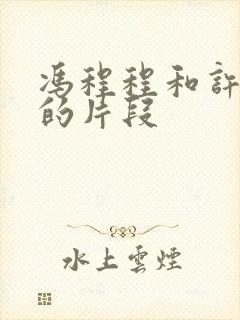 馮程程和許
的片段
水上雲煙